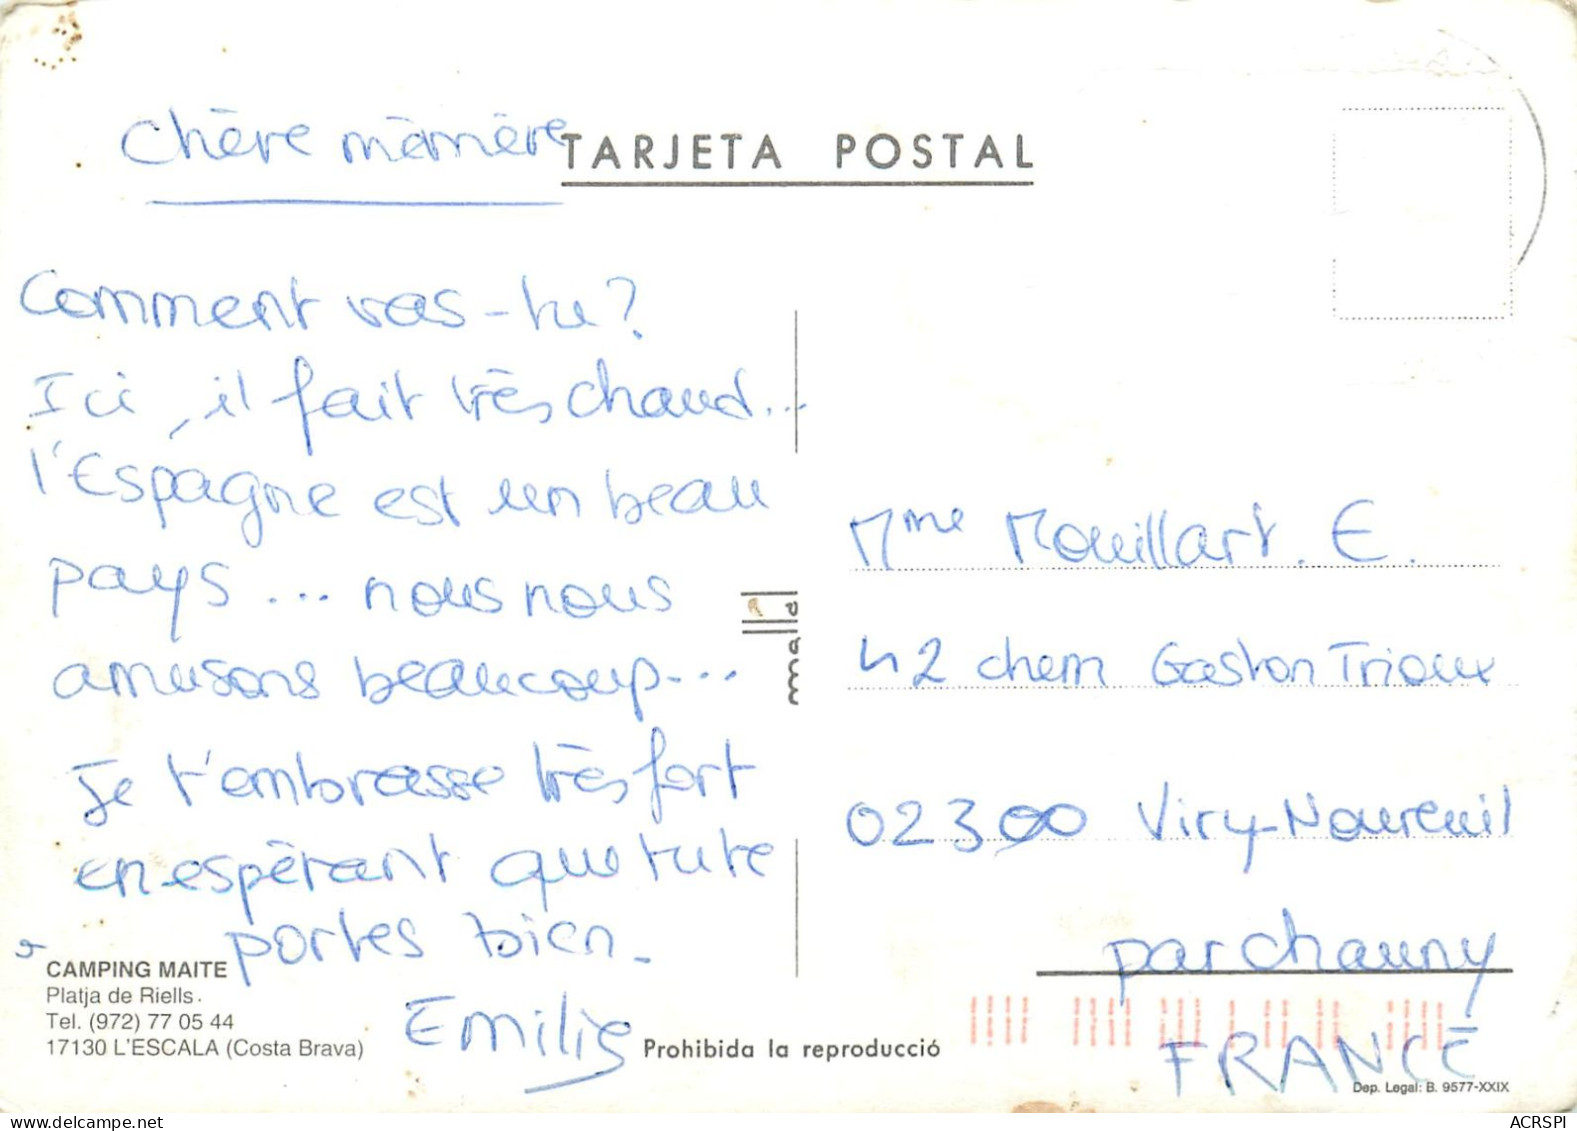 TARJETA POSTAL
Chère mèmère
Comment vas-tu?
Ici, il fait très chaud...
l'Espagne est un beau
pays... nous nous
amusons beaucoup...
Je t'embrasse très fort
en espèrant que tu te
portes bien.
Emilie
CAMPING MAITE
Platja de Riells.
Tel. (972) 77 05 44
17130 L'ESCALA (Costa Brava)
malld
Mme Mouillart. E.
42 chem Gaston Trioux
02300 Viry-Noureuil
par chauny
FRANCE
Prohibida la reproducció
Dep. Legal: B. 9577-XXIX
ACRSPI